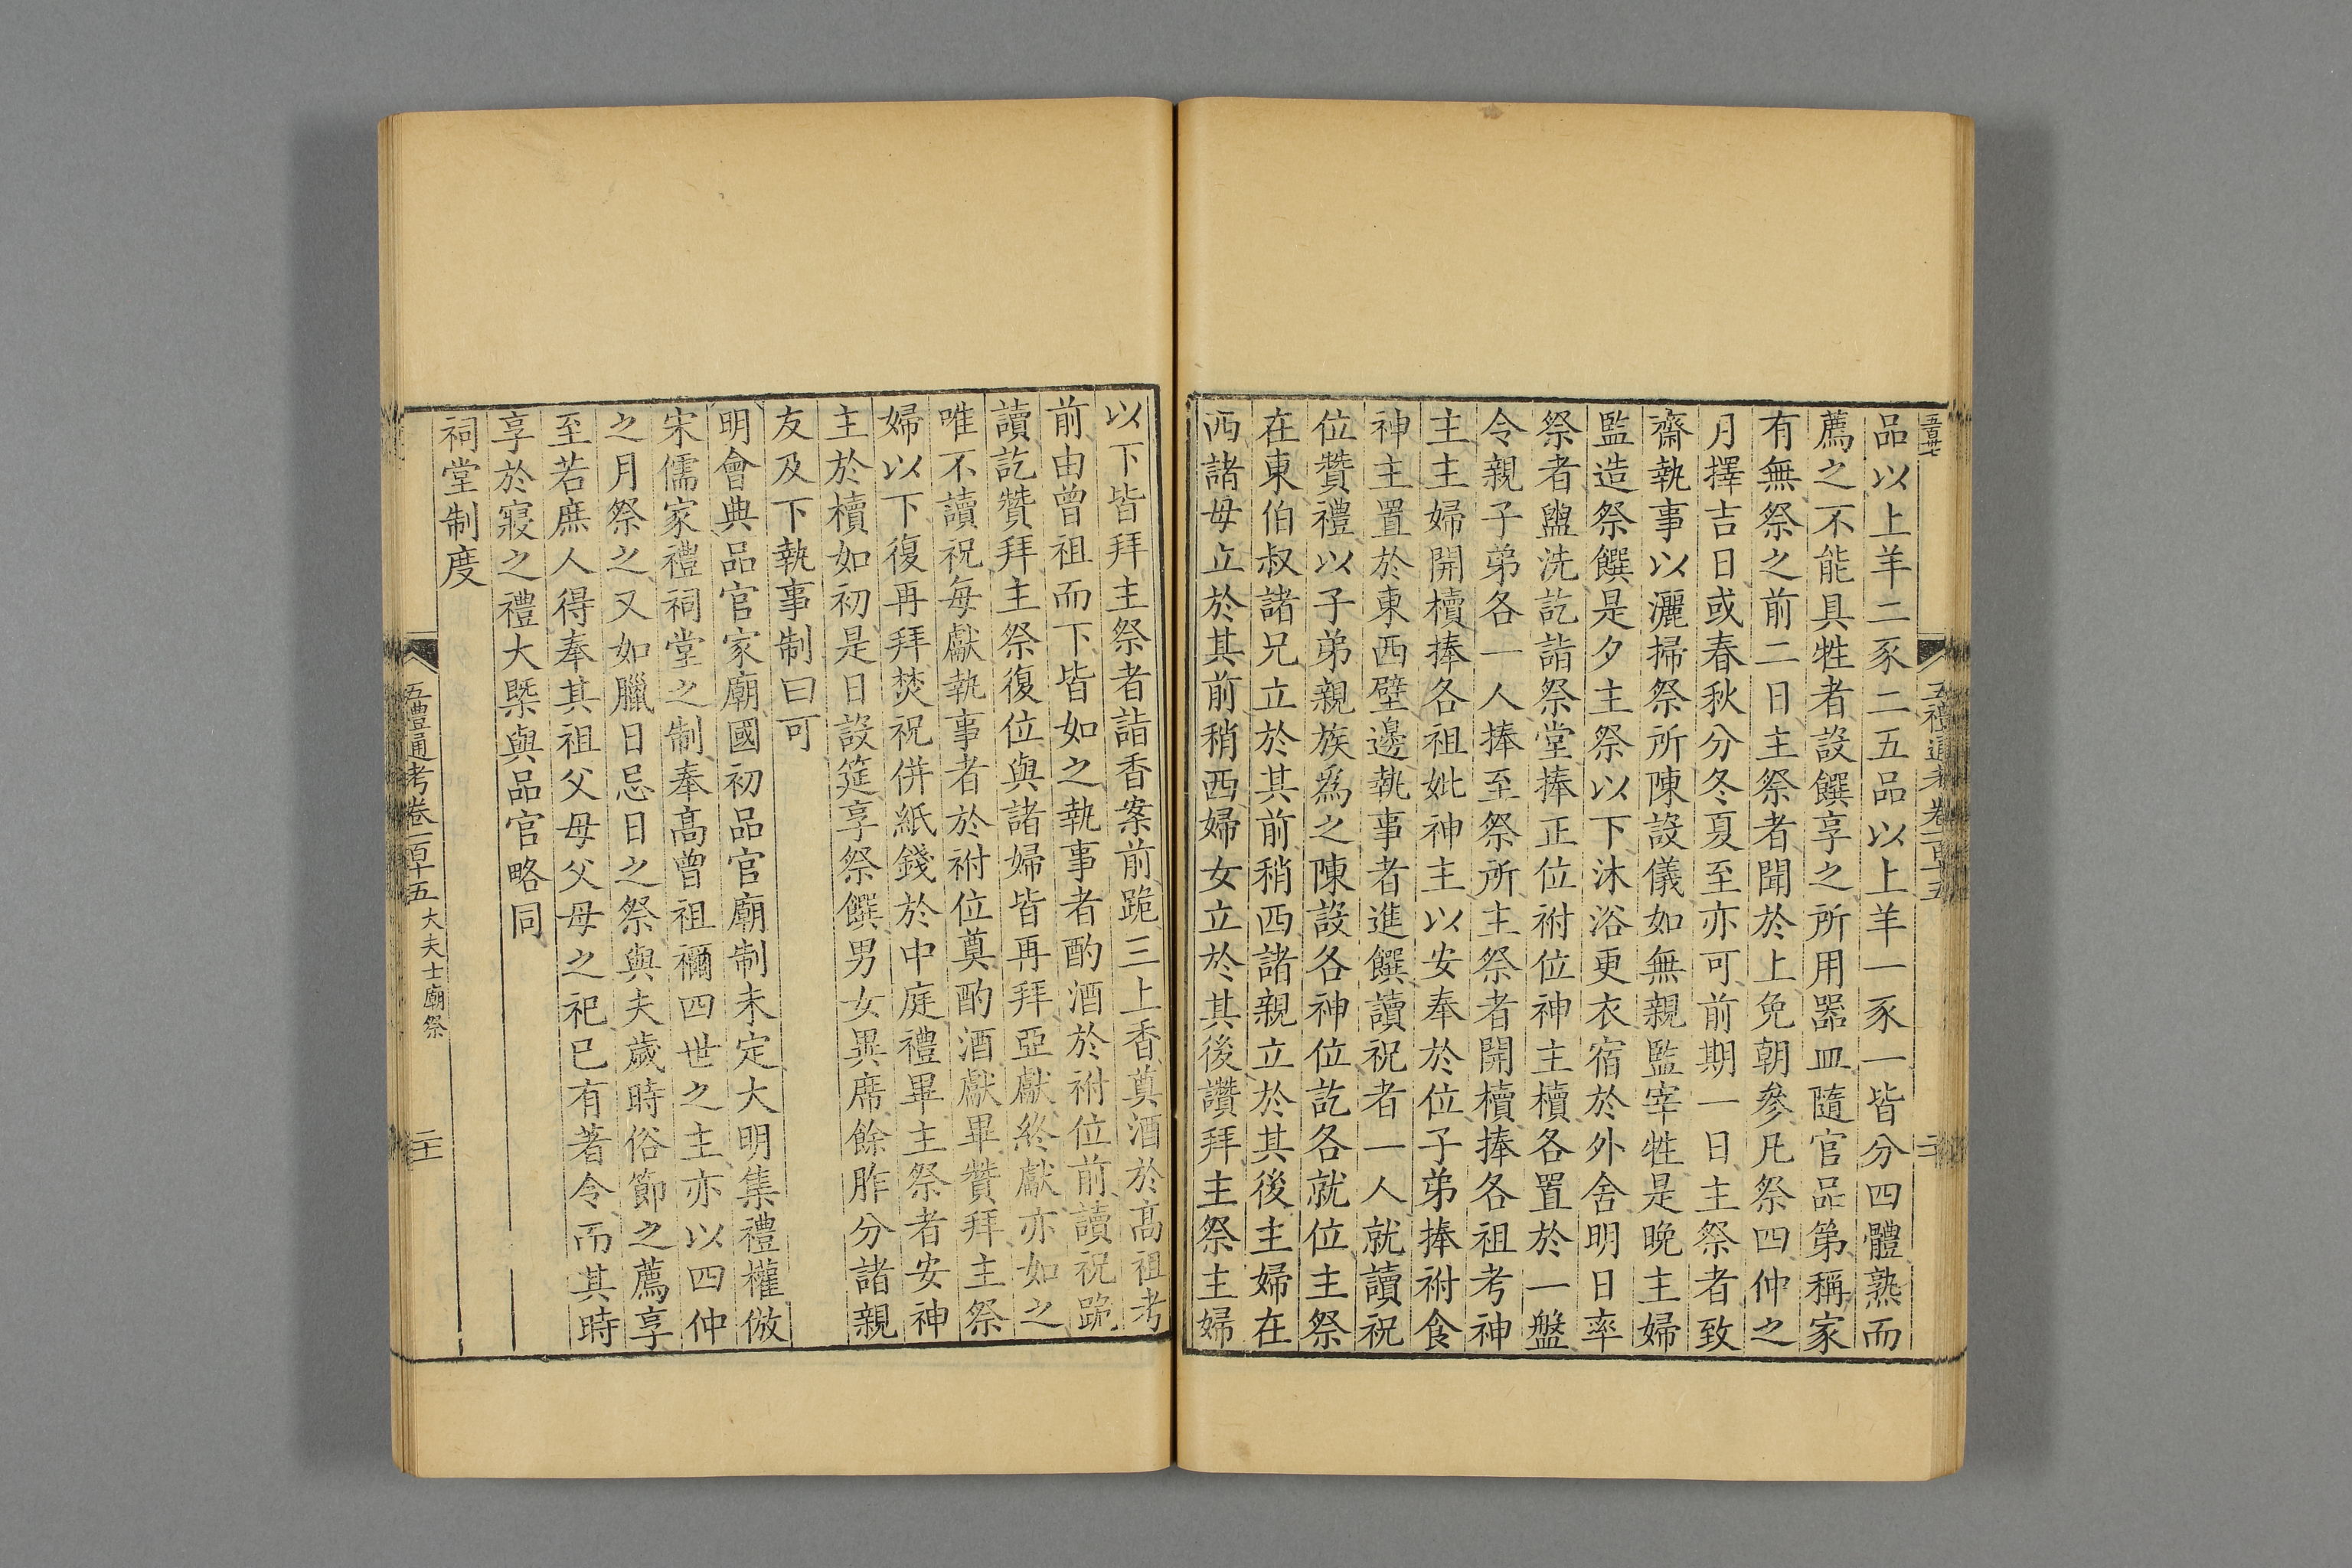 品以上羊二豕二五品以上羊一豕一皆分四體熟而
薦之不能具牲者設饌享之所用器皿隨官品第稱家
有無祭之前二日主祭者聞於上免朝參凡祭四仲之
月擇吉日或春秋分冬夏至亦可前期一日主祭者致
齋執事以灑掃祭所陳設儀如無親監宰牲是晚主婦
監造祭饌是夕主祭以下沐浴更衣宿於外舍明日率
祭者盥洗訖詣祭堂捧正位祔位神主櫝各置於一盤
令親子弟各一人捧至祭所主祭者開櫝捧各祖考神
主主婦開櫝捧各祖妣神主以安奉於位子弟捧祔食
神主置於東西壁邊執事者進饌讀祝者一人就讀祝
位贊禮以子弟親族爲之陳設各神位訖各就位主祭
在東伯叔諸兄立於其前稍西諸親立於其後主婦在
西諸母立於其前稍西婦女立於其後讚拜主祭主婦
以下皆拜主祭者詣香案前跪三上香奠酒於高祖考
前由曾祖而下皆如之執事者酌酒於祔位前讀祝跪
讀訖贊拜主祭復位與諸婦皆再拜亞獻終獻亦如之
唯不讀祝每獻執事者於祔位奠酌酒獻畢贊拜主祭
婦以下復再拜焚祝併紙錢於中庭禮畢主祭者安神
主於櫝如初是日設筵享祭饌男女異席餘胙分諸親
友及下執事制曰可
明會典品官家廟國初品官廟制未定大明集禮權倣
宋儒家禮祠堂之制奉高曾祖禰四世之主亦以四仲
之月祭之又如臘日忌日之祭與夫歲時俗節之薦享
至若庶人得奉其祖父母父母之祀已有著令而其時
享於寢之禮大槩與品官略同
祠堂制度
五禮通考卷一百十五 大夫士廟祭
二十